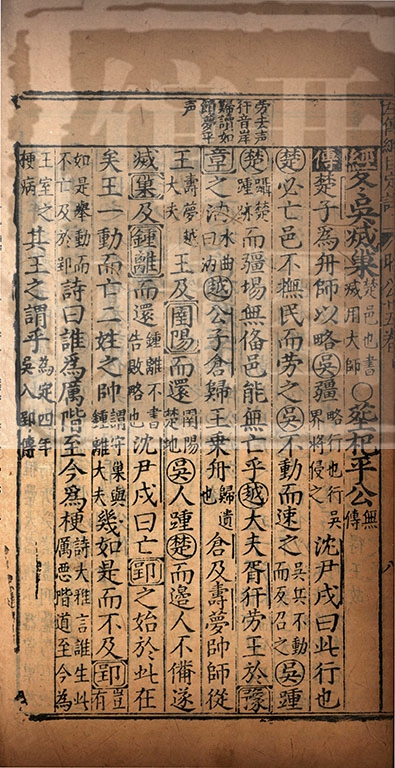 昭公十五卷
八
經冬吳滅巢楚邑也書滅用大師○塟杞平公無傳
傳楚子為舟師以略吳疆略行也行吳界將侵之沈尹戌曰此行也
楚必亡邑不撫民而勞之吳不動而速之吳兵不動而反召之吳踵
楚躡楚踵跡而疆場無偹邑能無亡乎越大夫胥犴勞王於豫
章之汭水曲曰汭越公子倉歸王乘舟歸遺也倉及壽夢帥師從
王壽夢越大夫王及圉陽而還圉陽楚地吳人踵楚而邊人不備遂
滅巢及鍾離而還鍾離不書告敗略也沈尹戌曰亡郢之始於此在
矣王一動而亡二姓之帥謂守巢與鍾離大夫幾如是而不及郢豈有
如是舉動而不亡及於郢詩曰誰為厲階至今為梗詩大雅言誰生此厲惡階道至今為
王室之梗病其王之謂乎為定四年吳入郢傳
勞去声
犴音岸
歸讀如
饋夢平
声